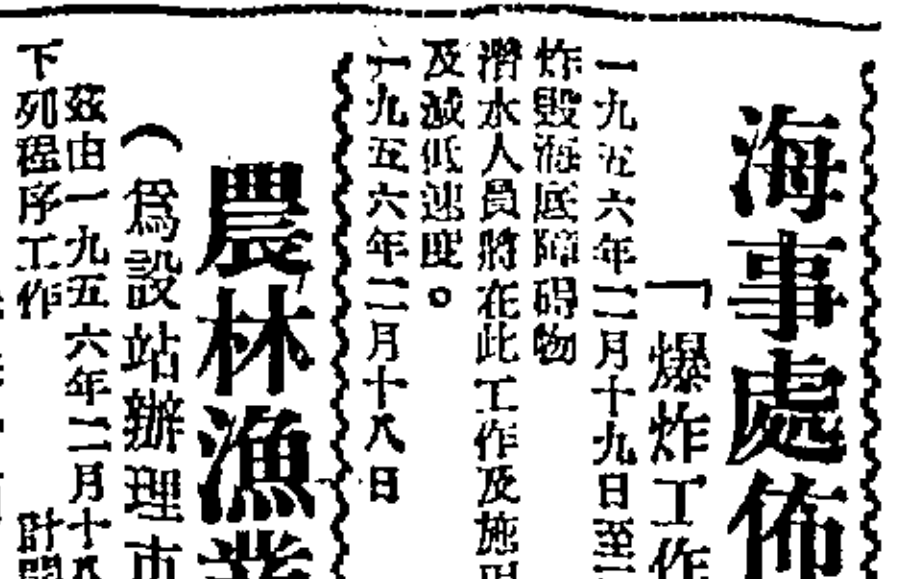 海事處佈
「爆炸工作
一九五六年二月十九日至
炸毀海底障碍物
潛水人員將在此工作及施
及減低速度。
一九五六年二月十八日
農林漁業
(爲設站辦理市
茲由一九五六年二月十八
下列程序工作
計開